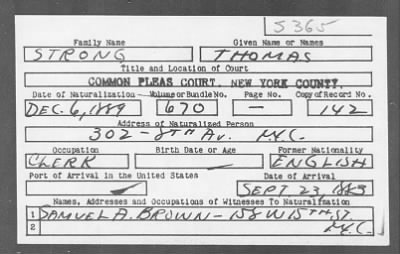 S365
Family Name Given Name or Names
STRONG THOMAS
Title and Location of Court
COMMON PLEAS COURT, NEW YORK COUNTY.
Date of Naturalization Volume or Bundle No. Page No. Copy of Record No.
DEC. 6, 1889 670 — 142
Address of Naturalized Person
302 - 8TH AV. N.Y.C.
Occupation Birth Date or Age Former Nationality
CLERK ENGLISH
Port of Arrival in the United States Date of Arrival
SEPT 23, 1883
Names, Addresses and Occupations of Witnesses To Naturalization
1 SAMUEL A. BROWN - 158 W 15TH ST.
2 N.Y.C.